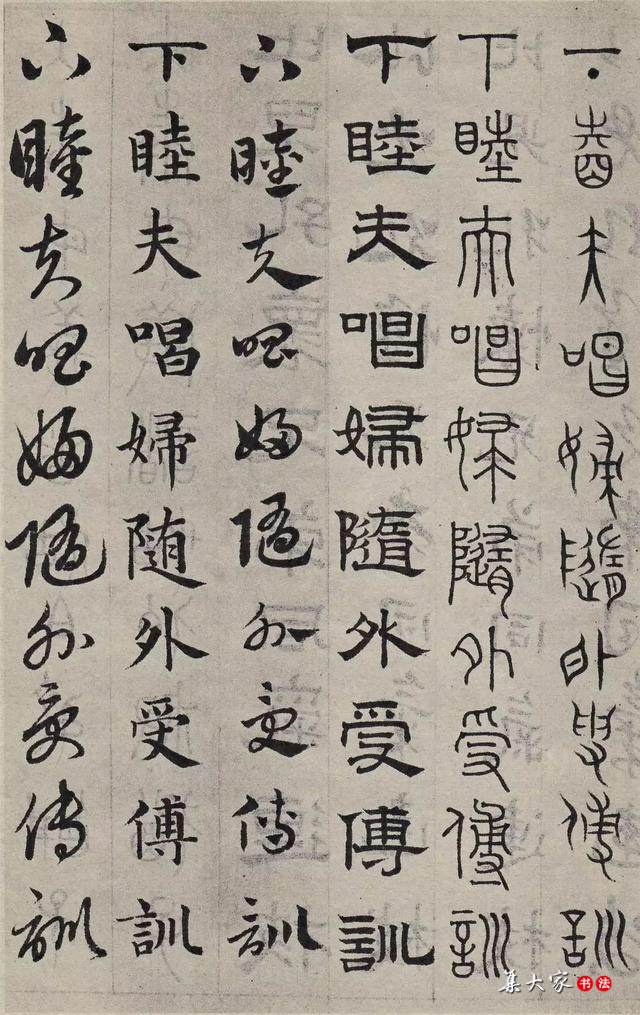 下睦夫唱婦隨外受傅訓
下睦夫唱婦隨外受傅訓
下睦夫唱婦隨外受傅訓
下睦夫唱婦隨外受傅訓
下睦夫唱婦随外受傅訓
下睦夫唱婦隨外受傅訓
集大家书法